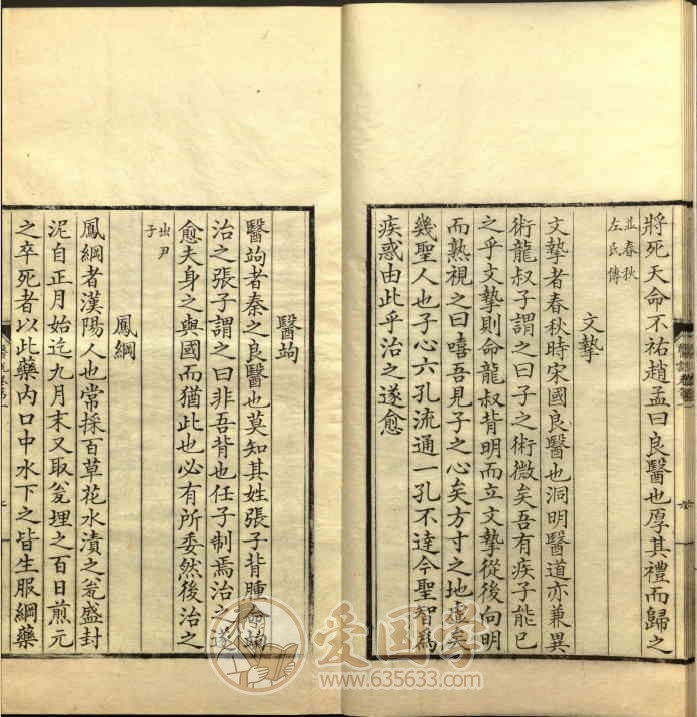 將死天命不祐趙孟曰良醫也厚其禮而歸之
並春秋
左氏傳
文摯
文摯者春秋時宋國良醫也洞明醫道亦兼異
術龍叔子謂之曰子之術微矣吾有疾子能已
之乎文摯則命龍叔背明而立文摯從後向明
而熟視之曰嘻吾見子之心矣方寸之地虛矣
幾聖人也子心六孔流通一孔不達今聖智爲
疾惑由此乎治之遂愈
醫竘
醫竘者秦之良醫也莫知其姓張子背腫命竘
治之張子謂之曰非吾背也任子制焉治之遂
愈夫身之與國而猶此也必有所委然後治之
出尹
子
鳳綱
鳳綱者漢陽人也常採百草花水漬之瓮盛封
泥自正月始迄九月末又取瓮埋之百日煎元
之卒死者以此藥內口中水下之皆生服綱藥
爱国学
www.635633.com